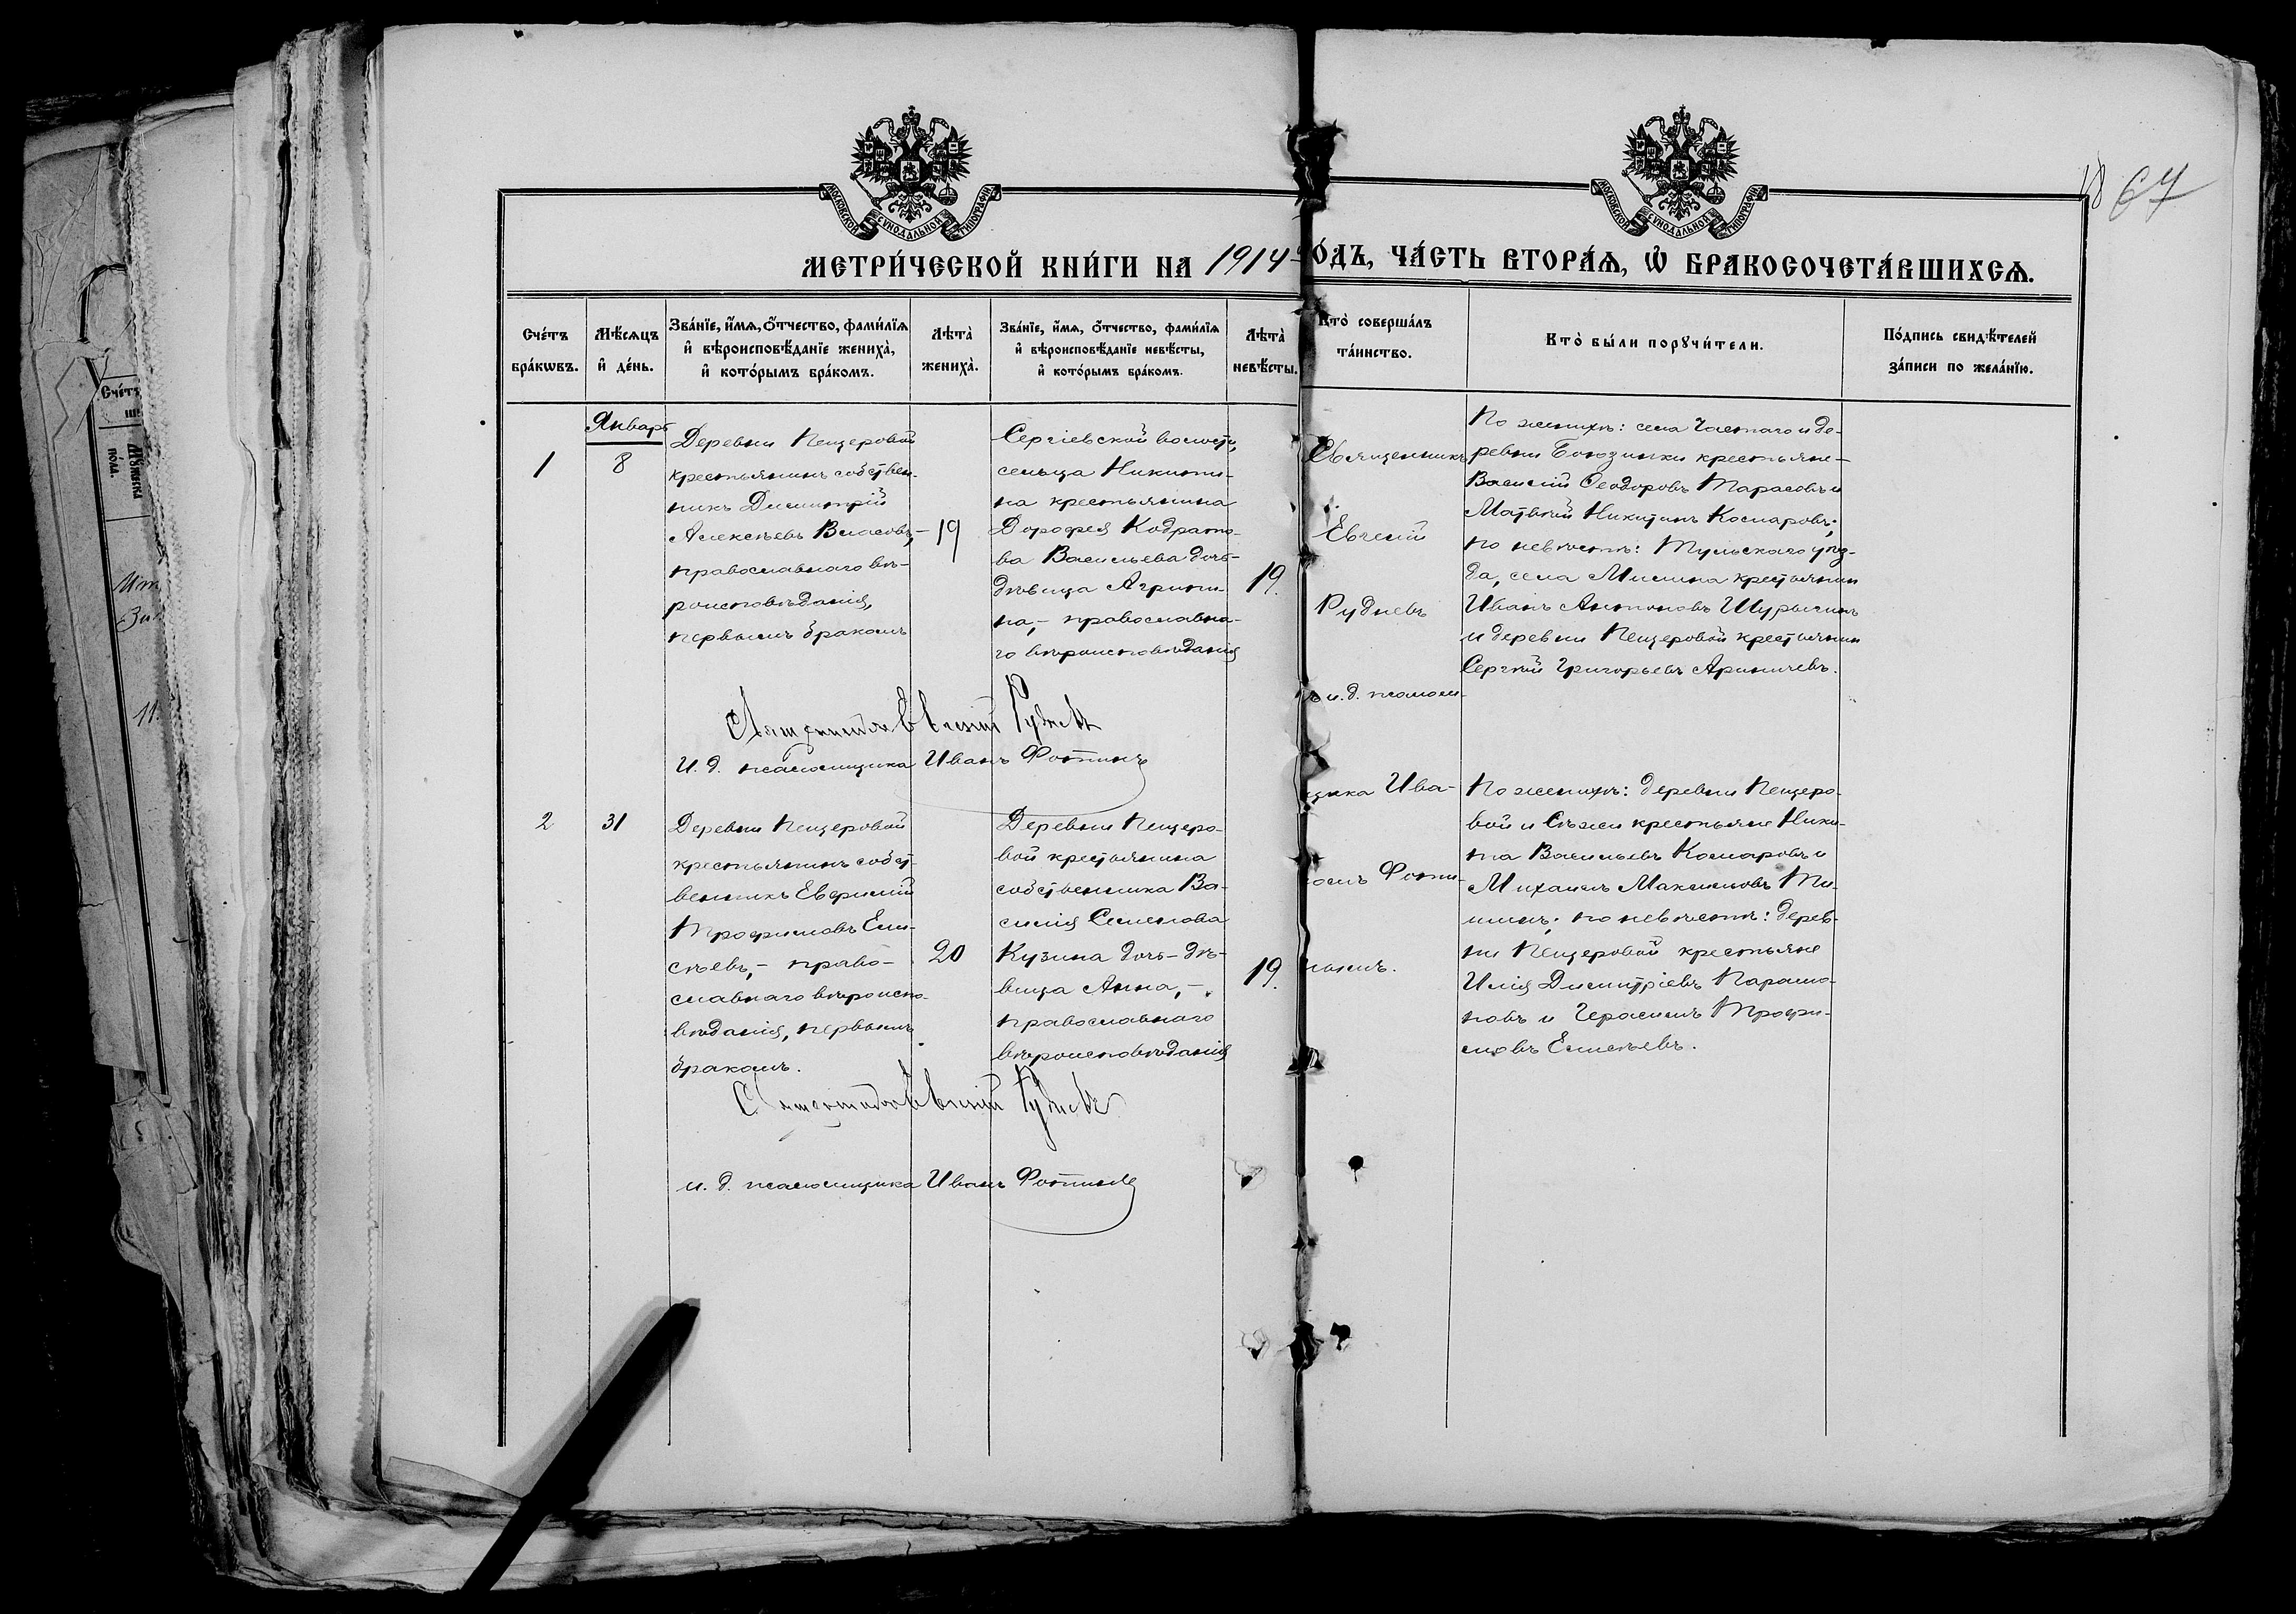 МОСКОВСКОЙ СУНОДАЛЬНОЙ ТИПОГРАФІИ
МОСКОВСКОЙ СУНОДАЛЬНОЙ ТИПОГРАФІИ
67
МЕТРИ́ЧЕСКОЙ КНИ́ГИ НА 1914 ГО́ДЪ, ЧА́СТЬ ВТОРА́Ѧ, Ѡ БРАКОСОЧЕТА́ВШИХСѦ.
Сче́тъ бра́кѡвъ.
Мѣ́сѧцъ и҆ де́нь.
Зва́нїе, и҆́мѧ, ѻ҆́тчество, фами́лїѧ и҆ вѣроисповѣ́данїе жениха̀, и҆ кото́рымъ бра́комъ.
Лѣта̀ жениха̀.
Зва́нїе, и҆́мѧ, ѻ҆́тчество, фами́лїѧ и҆ вѣроисповѣ́данїе невѣ́сты, и҆ кото́рымъ бра́комъ.
Лѣта̀ невѣ́сты.
Кто̀ соверша́лъ та́инство.
Кто̀ бы́ли порꙋчи́тели.
По́дпись свидѣ́телей за́писи по жела́нїю.
1
Январь
8
Деревни Пещеровой
крестьянинъ собствен-
никъ Димитрій
Алексѣевъ Власовъ,-
православнаго вѣ-
роисповѣданія,
первымъ бракомъ
19
Сергіевской волости,
сельца Никити-
на крестьянина
Дорофея Кодрато-
ва Васильева дочь-
дѣвица Агрипи-
на,- православна-
го вѣроисповѣданія
19.
Священникъ
Евгеній
Рудневъ
ъ и. д. псаломщ-
щика Ива-
номъ Фоти-
нымъ.
По женихѣ: села Частаго и де-
ревни крестьяне-
Василій Ѳеодоровъ Тарасовъ и
Матвѣй Никитинъ Комаровъ;
по невѣстѣ: Тульскаго уѣз-
да, села Мишина крестьянин
Иванъ Антоновъ Шурыгинъ
и деревни Пещеровой крестьянин
Сергѣй Григорьевъ Ариничевъ.
Священникъ Евгеній Рудневъ
И. д. псаломщика Иванъ Фотинъ
2
31
Деревни Пещеровой
крестьянинъ собст-
венникъ Евфимій
Трофимовъ Ели-
сѣевъ,- право-
славнаго вѣроиспо-
вѣданія, первымъ
бракомъ.
20
Деревни Пещеро-
вой крестьянина
собственника Ва-
силія Семенова
Кузина дочь-дѣ-
вица Анна,-
православнаго
вѣроисповѣданія
19.
По женихѣ: деревни Пещеро-
вой и Сѣжи крестьяне Ники-
та Васильевъ Комаровъ и
Михаилъ Максимовъ Ти-
шинъ; по невѣстѣ: дерев-
ни Пещеровой крестьяне
Илія Димитріевъ Парамо-
новъ и Герасимъ Трофи-
мовъ Елисѣевъ.
Священникъ Евгеній Рудневъ
и. д. псаломщика Иванъ Фотинъ